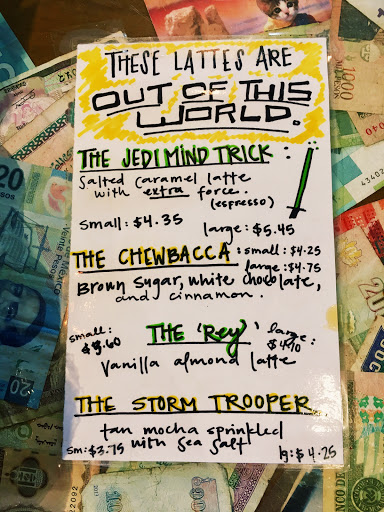 THESE LATTES ARE
OUT OF THIS
WORLD.
THE JEDI MIND TRICK :
Salted Caramel latte
with extra force.
(espresso)
small: $4.35 large: $5.45
THE CHEWBACCA : small: $4.25
large: $4.75
Brown Sugar, white chocolate,
and cinnamon.
small: THE 'Rey' large:
$3.60 $4.10
Vanilla almond latte
THE STORM TROOPER
tan mocha sprinkled
with sea salt
sm: $3.75 lg: $4.25
20
1000
Veinte Pesos
20